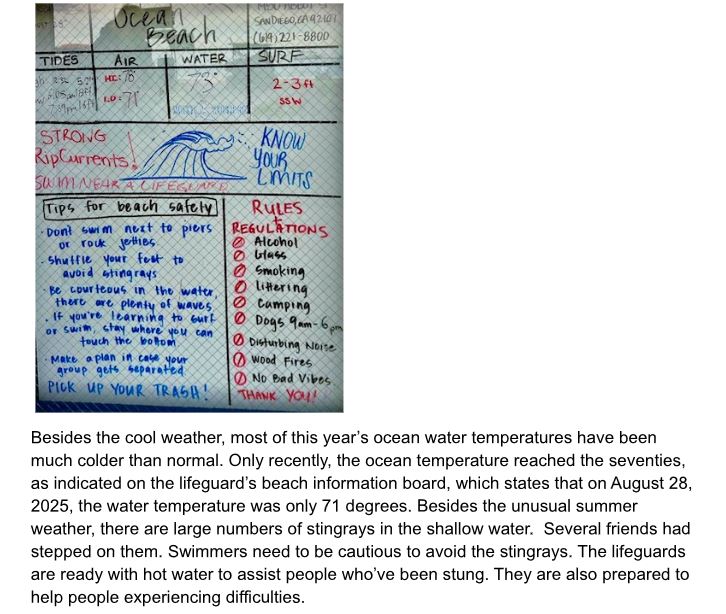 Ocean
Beach
SAN DIEGO, CA 92107
(619) 221-8800
TIDES
AIR
WATER
SURF
HI: 78°
LO: 71°
73°
2-3 ft
SSW
STRONG
Rip Currents!
SWIM NEAR A LIFEGUARD
KNOW
YOUR
LIMITS
Tips for beach safety
· Dont swim next to piers
or rock jetties
· Shuffle your feet to
avoid stingrays
· Be courteous in the water,
there are plenty of waves
· If you're learning to surf
or swim, stay where you can
touch the bottom
· Make a plan in case your
group gets separated
PICK UP YOUR TRASH!
RULES
+
REGULATIONS
Alcohol
Glass
Smoking
Littering
Camping
Dogs 9am-6pm
Disturbing Noise
Wood Fires
No Bad Vibes
THANK YOU!
Besides the cool weather, most of this year's ocean water temperatures have been
much colder than normal. Only recently, the ocean temperature reached the seventies,
as indicated on the lifeguard's beach information board, which states that on August 28,
2025, the water temperature was only 71 degrees. Besides the unusual summer
weather, there are large numbers of stingrays in the shallow water.  Several friends had
stepped on them. Swimmers need to be cautious to avoid the stingrays. The lifeguards
are ready with hot water to assist people who've been stung. They are also prepared to
help people experiencing difficulties.